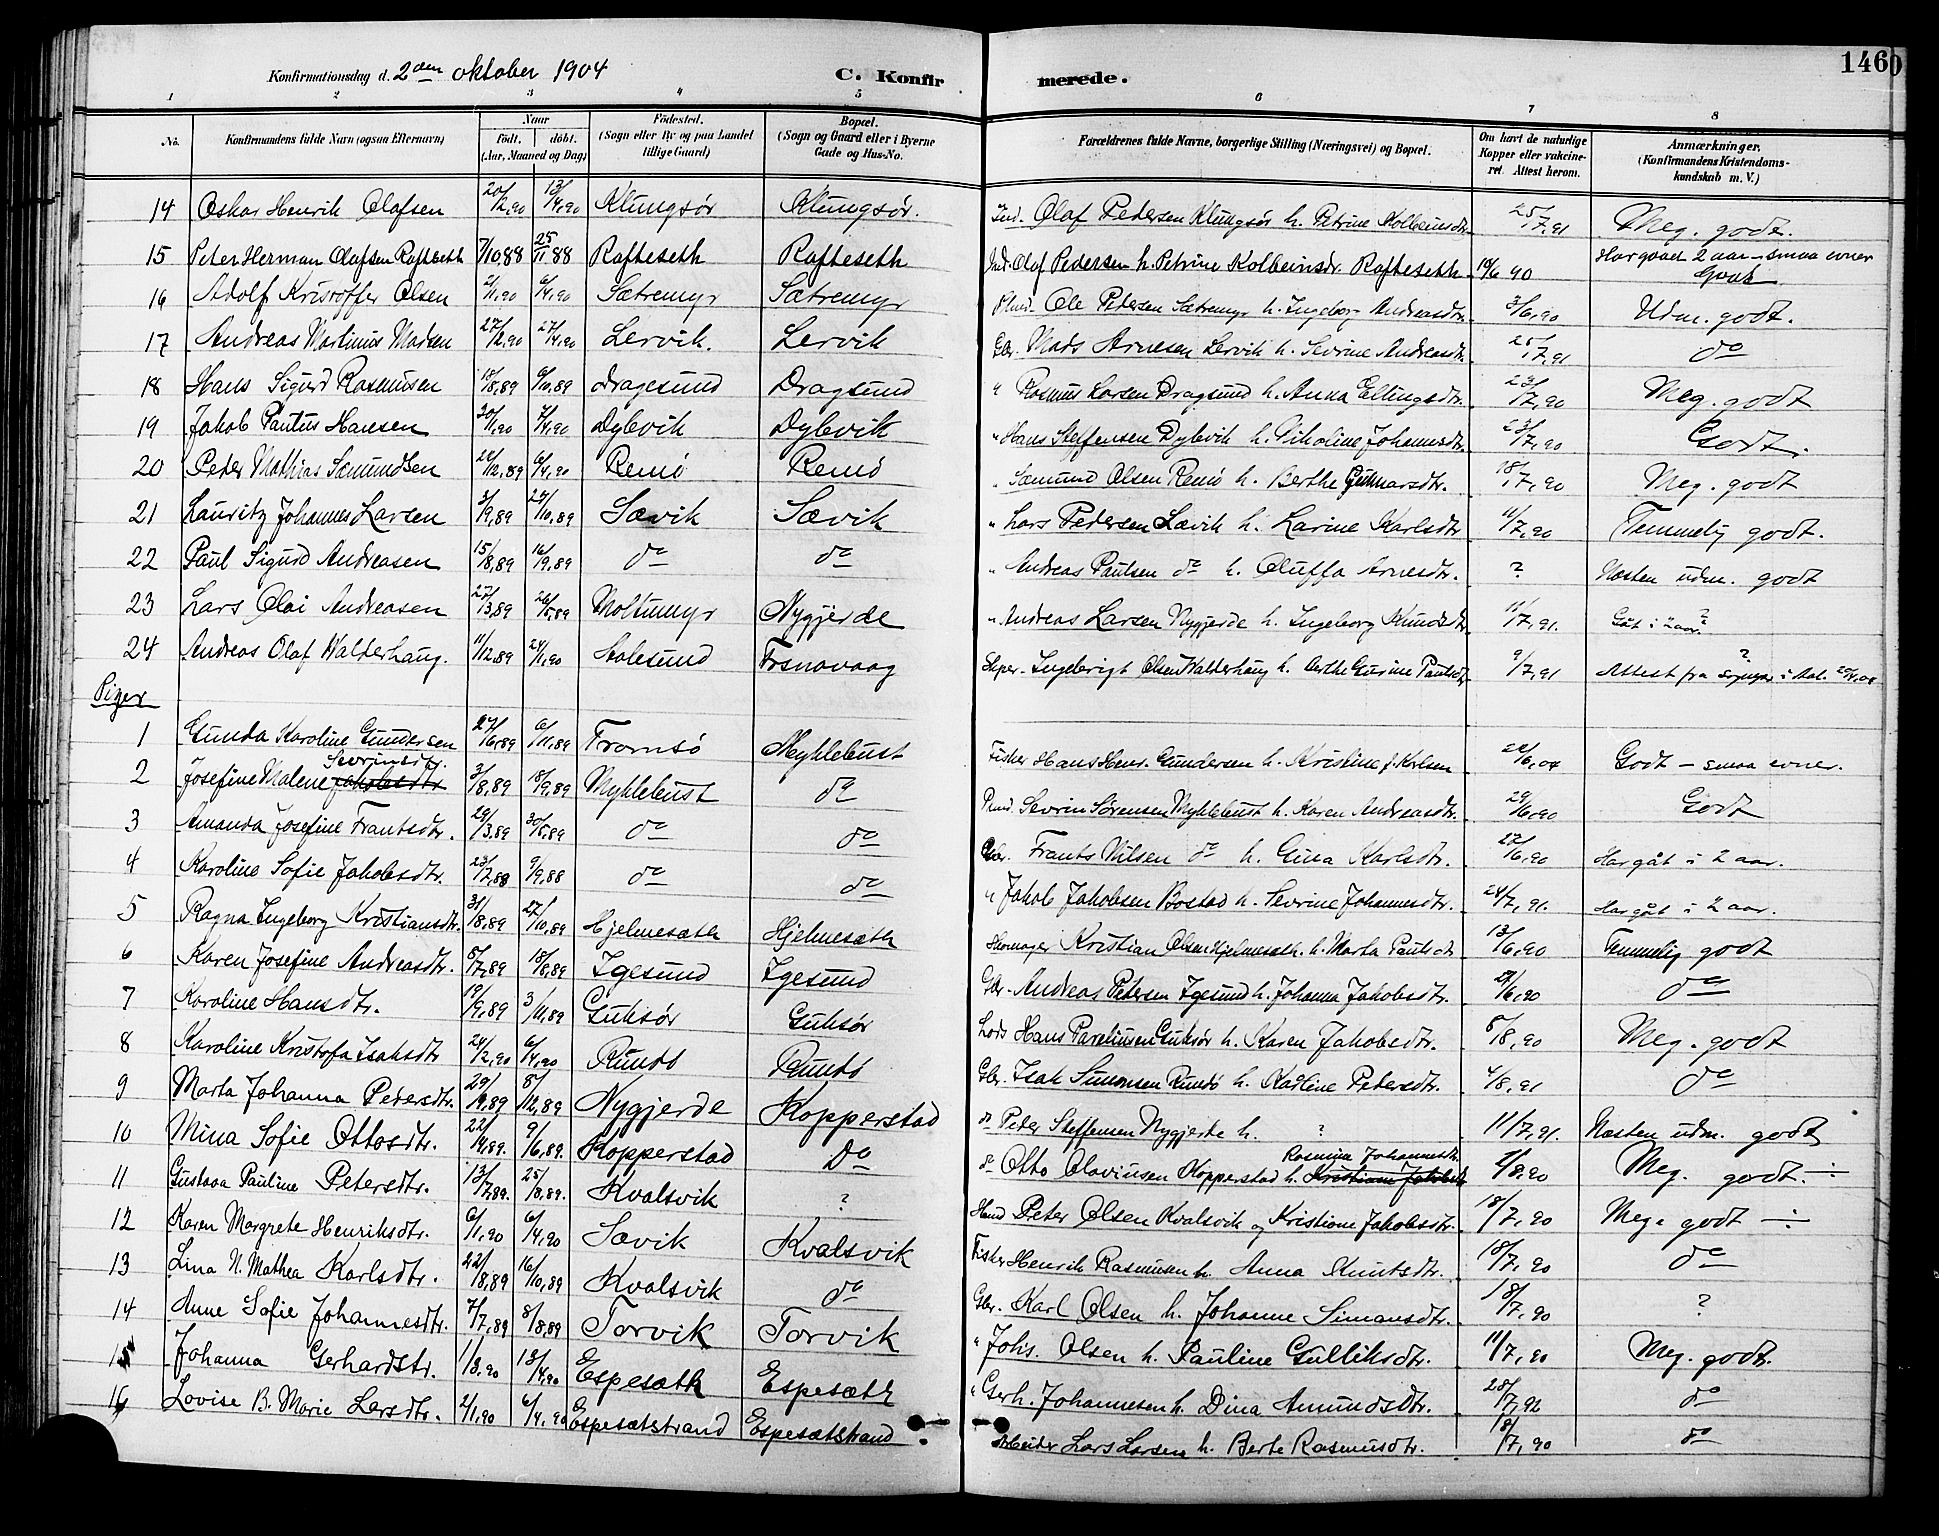 Konfirmationsdag d. 2den oktober 1904 C. Konfirmerede. 146
1 2 3 4 5 6 7 8
No. Konfirmandens fulde Navn (ogsaa Efternavn) Naar født. døbt. (Aar, Maaned og Dag) Fødested. (Sogn eller By og paa Landet tillige Gaard) Bopæl. (Sogn og Gaard eller i Byerne Gade og Hus-No. Forældrenes fulde Navne, borgerlige Stilling (Næringsvei) og Bopæl. Om havt de naturlige Kopper eller vakcineret. Attest herom. Anmærkninger. (Konfirmandens Kristendomskundskab m. V.)
14 Oskar Henrik Olafsen 20/2,90 13/4,90 Klungsør Klungsør. Ind. Olaf Pedersen Klungsør h. Petrine Kolbeinsdtr. 25/7,91 Meg. godt.
15 Peter Herman Olafsen Rafteseth 7/10,88 25/11 88 Rafteseth Rafteseth Ind. Olaf Pedersen h. Petrine Kolbeinsdr. Rafteseth 18/6 90 Har gaaet 2 aar - smaa evner Godt
16 Adolf Kristoffer Olsen 2/1,90 6/4,90 Sætremyr Sætremyr Plmd. Ole Petersen Sætremyr h. Ingeborg Andreasdtr. 3/6,90 Udm. godt.
17 Andreas Martinus Madsen 27/2,90 27/4,90 Lervik. Lervik Gbr. Mads Arnesen Lervik h. Sevrine Andreasdtr. 25/7,91 do
18 Hans Sigurd Rasmusen 18/8,89 6/10,89 Dragesund Dragsund " Rasmus Larsen Dragsund h. Anna Ellingsdtr. 23/7,90 Meg. godt
19 Jakob Pautus Hansen 30/1,90 7/4,90 Dybvik Dybvik " Hans Steffensen Dybvik h. Nikoline Johannesdtr. 23/7,90 Godt.
20 Peter Mathias Sæmundsen 26/12,89 6/4,90 Remø Remø " Sæmund Olsen Remø h. Berthe Gunnarsdtr. 18/7,90 Meg. godt
21 Lauritz Johannes Larsen 3/9,89 27/10,89 Sævik Sævik " Lars Pedersen Sævik h. Larine Karlsdtr 11/7,90 Temmelig godt.
22 Paul Sigurd Andreasen 15/8,89 16/9,89 do do " Andreas Paulsen do h. Oluffa Arnesdtr. ? Næsten udm. godt
23 Lars Olai Andreasen 27/3,89 26/5,89 Moltumyr Nygjerde " Andreas Larsen Nygjerde h. Ingeborg Knudsdtr 11/7,91. Gåt i 2 aar?
24 Andreas Olaf Walderhaug. 11/12,89 24/1,90 Aalesund Frsnavaag Skper. Ingebrigt Olsen Walderhaug h. Berthe Gurine Paulsdtr 9/7,91 ? Attest fra sognepr. i Aal. 20/4,04
Piger
1 Gunda Karoline Gundersen 27/6,89 6/11,89 Tromsø Myklebust Fisker Hans Henr. Gundersen h. Kristine f. Karlsen 22/6,04 Godt - smaa evner.
2 Josefine Malene Sevrinsdtr. 3/8,89 18/9,89 Myklebust do Plmd. Sevrin Sørensen Myklebust h. Karen Andreasdtr. 29/6,90 Godt
3 Amanda Josefine Frantsdtr. 29/3,89 30/5,89 do do Gbr. Frants Nilsen do h. Gina Karlsdtr. 27/6,90 Har gåt i 2 aar.
4 Karoline Sofie Jakobsdtr. 23/7,88 9/9,88 do do " Jakob Jakobsen Bostad h. Sevrine Johannesdtr. 24/7,91. Har gåt i 2 aar.
5 Ragna Ingeborg Kristiansdtr. 31/8,89 27/10,89 Hjelmesæth Hjelmesæth Skomager Kristian Olsen Hjelmesæth. h. Marta Paulsdtr 13/6,90 Temmelig godt
6 Karen Josefine Andreasdtr. 8/7,89 18/8,89 Igesund Igesund Gbr. Andreas Petersen Igesund h. Johanna Jakobsdtr. 21/6,90 do
7 Karoline Hansdtr. 19/9,89 3/11,89 Guksør Guksør Lods Hans Pareliusen Guksør h. Karen Jakobsdtr. 8/8,90 Meg. godt
8 Karoline Kristofa Isaksdtr 24/2,90 6/4,90 Rundø Rundø Gbr. Isak Simonsen Rundø h. Karline Petersdtr. 4/8,91 do
9 Marta Johanna Petersdtr. 29/9,89 8/12,89 Nygjerde Kopperstad do Peter Steffensen Nygjerde h. ? 11/7,91. Næsten udm. godt
10 Mina Sofie Ottosdtr. 22/4,89. 9/6,89. Kopperstad Do do Otto Olaviusen Kopperstad h. Rasmina Johannesdtr. 7/8,90 Meg. godt. ÷
11 Gustava Pauline Petersdtr. 13/7,89. 25/8,89. Kvalsvik ? Hmd Peter Olsen Kvalsvik og Kristiane Jakobsdtr. 18/7,90 Meg. godt ÷
12 Karen Margrete Henriksdtr. 6/1,90 6/4,90 Sævik Kvalsvik Fisker Henrik Rasmusen h. Anna Knutsdtr. 18/7,90 do
13 Lina N. Mathea Karlsdtr. 22/8,89 16/10,89 Kvalsvik do Gbr. Karl Olsen h. Johanne Simonsdtr. 18/7,90 ?
14 Anne Sofie Johannesdtr. 7/7,89 8/8,89 Torvik Torvik " Johs. Olsen h. Pauline Gulliksdtr. 11/7,90 Meg. godt.
15 Johanna Gerhardstr. 1/3,90 13/4,90 Espesæth Espesæth " Gerh. Johannesen h. Dina Amundsdtr. 28/7,92 do
16 Lovise B. Marie Larsdtr. 2/1,90 6/4,90 Espesætstrand Espesætstrand Arbeider Lars Larsen h. Berte Rasmusdtr. 18/7,90 do